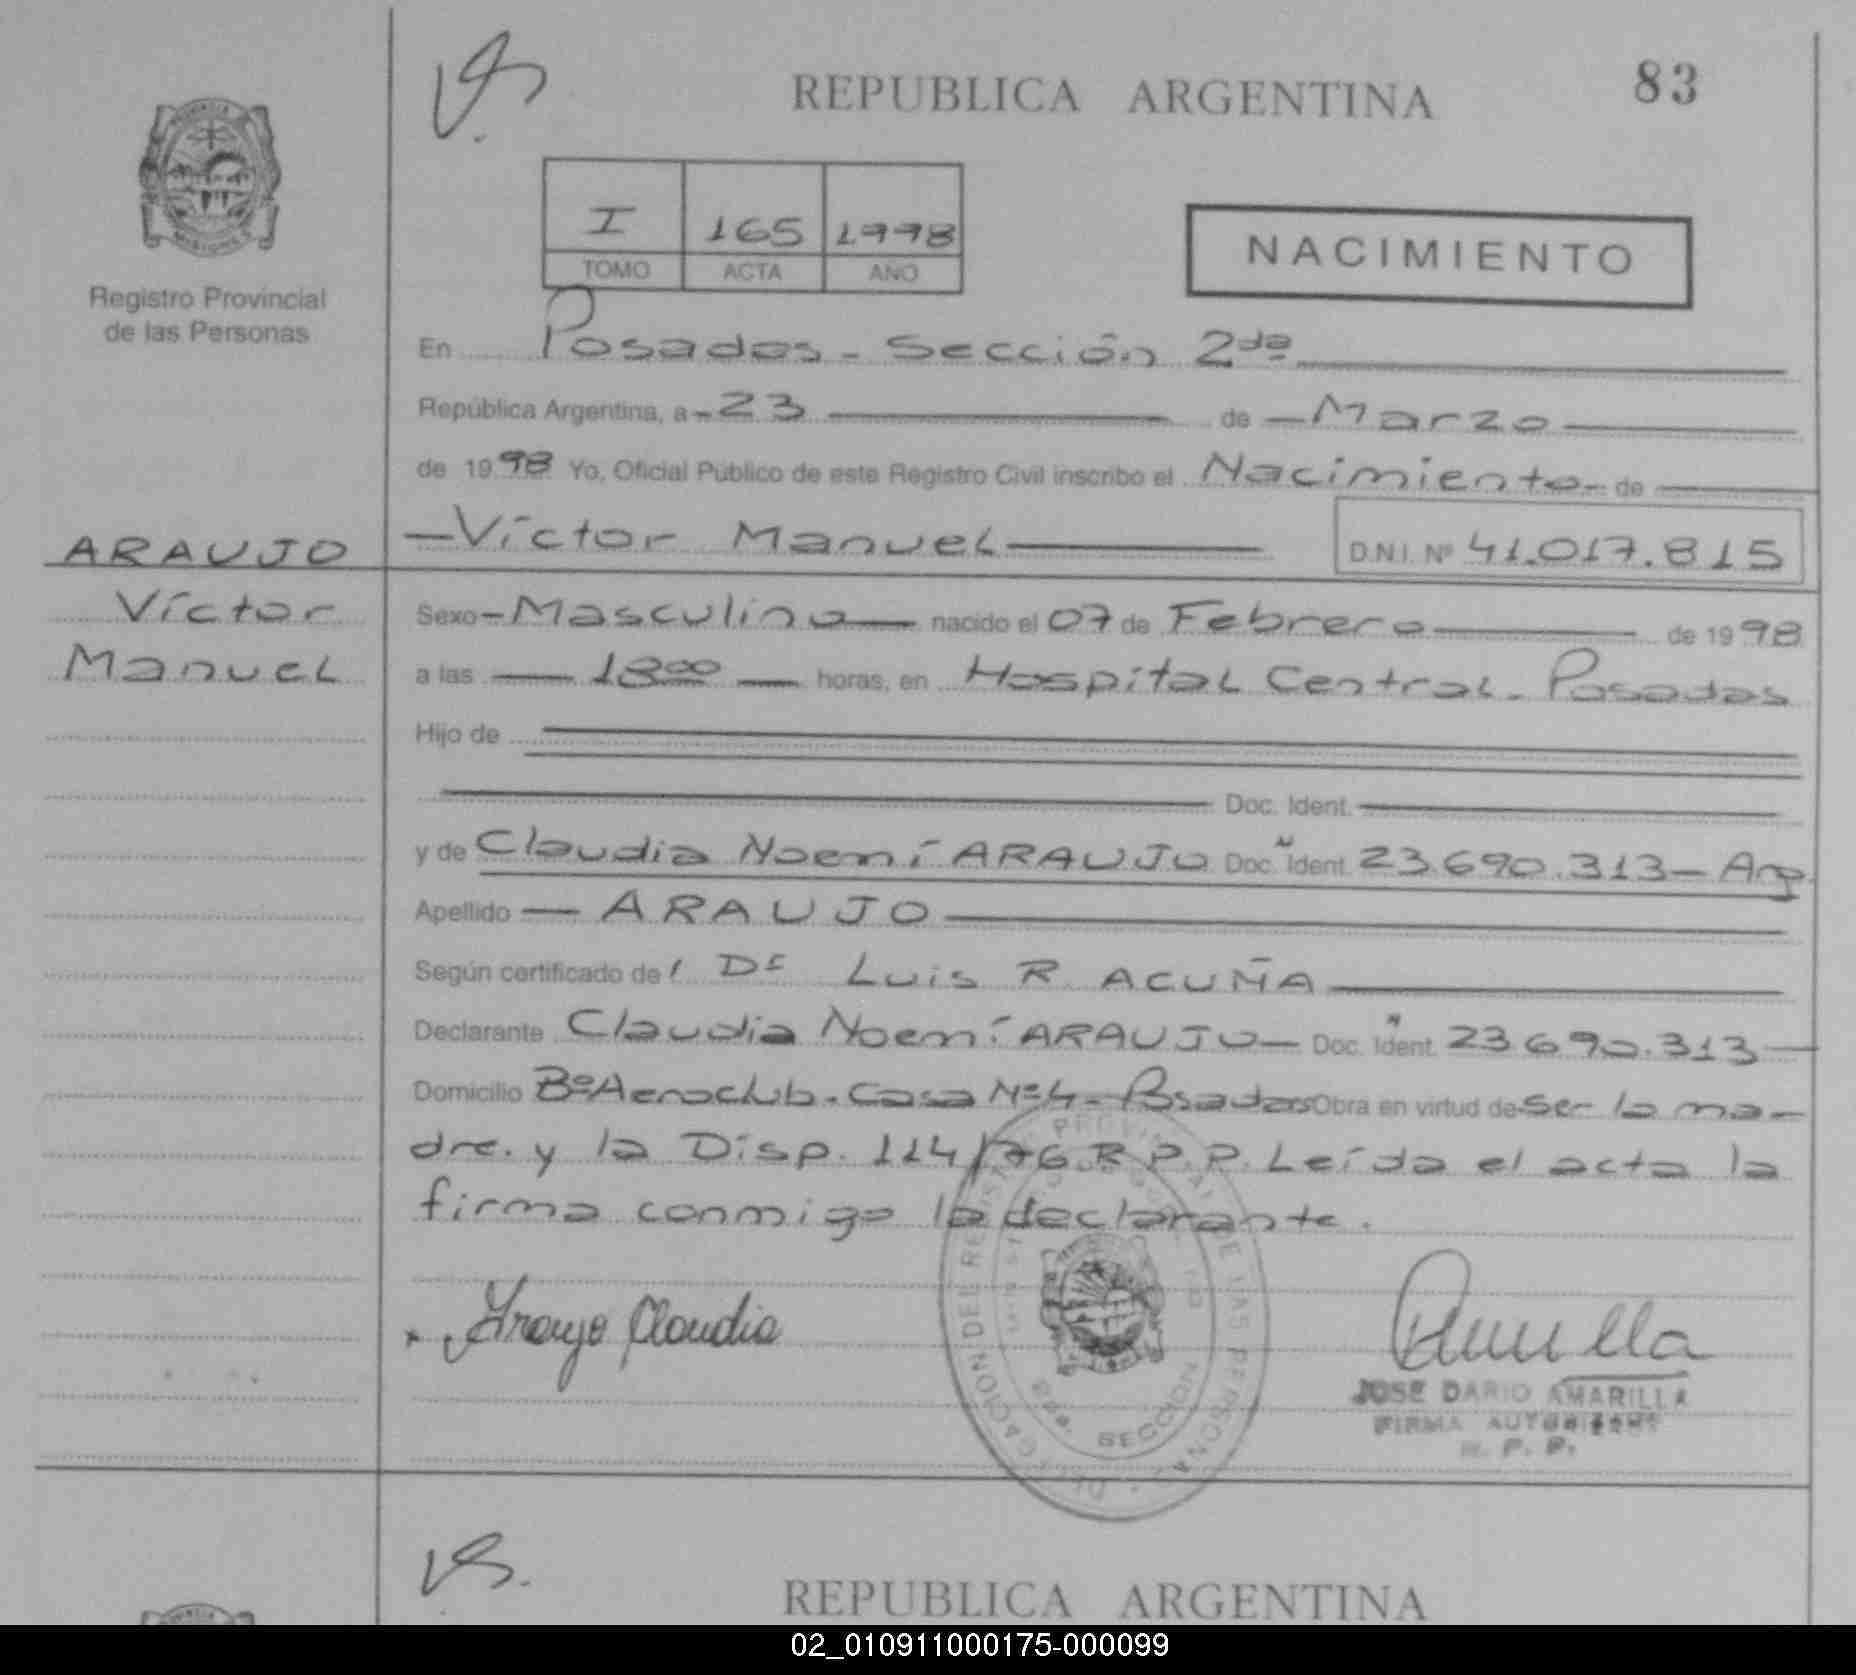 REPUBLICA ARGENTINA
83
I 165 1998
TOMO ACTA AÑO
NACIMIENTO
MISIONES
Registro Provincial
de las Personas
En Posadas - Sección 2da
República Argentina, a - 23 de - Marzo
de 1998 Yo, Oficial Público de este Registro Civil inscribo el Nacimiento - de
ARAUJO
Víctor
Manuel
- Víctor Manuel D.N.I. Nº 41.017.815
Sexo - Masculino nacido el 07 de Febrero de 1998
a las 18 00 horas, en Hospital Central - Posadas
Hijo de
Doc. Ident.
y de Claudia Noemí ARAUJO Doc. Ident. 23.690.313 - Arg.
Apellido - ARAUJO
Según certificado de / Dr Luis R. ACUÑA
Declarante Claudia Noemí ARAUJO - Doc. Ident. 23.690.313
Domicilio Bº Aeroclub - Casa Nº 4 - Posadas Obra en virtud de - ser la ma-
dre. y la Disp. 114/76 R.P.P. Leída el acta la
firma conmigo la declarante.
Araujo Claudia
DELEGACION DEL REGISTRO PROVINCIAL DE LAS PERSONAS
2da. SECCION
JOSE DARIO AMARILLA
FIRMA AUTORIZADA
R. P. P.
REPUBLICA ARGENTINA
02_010911000175-000099